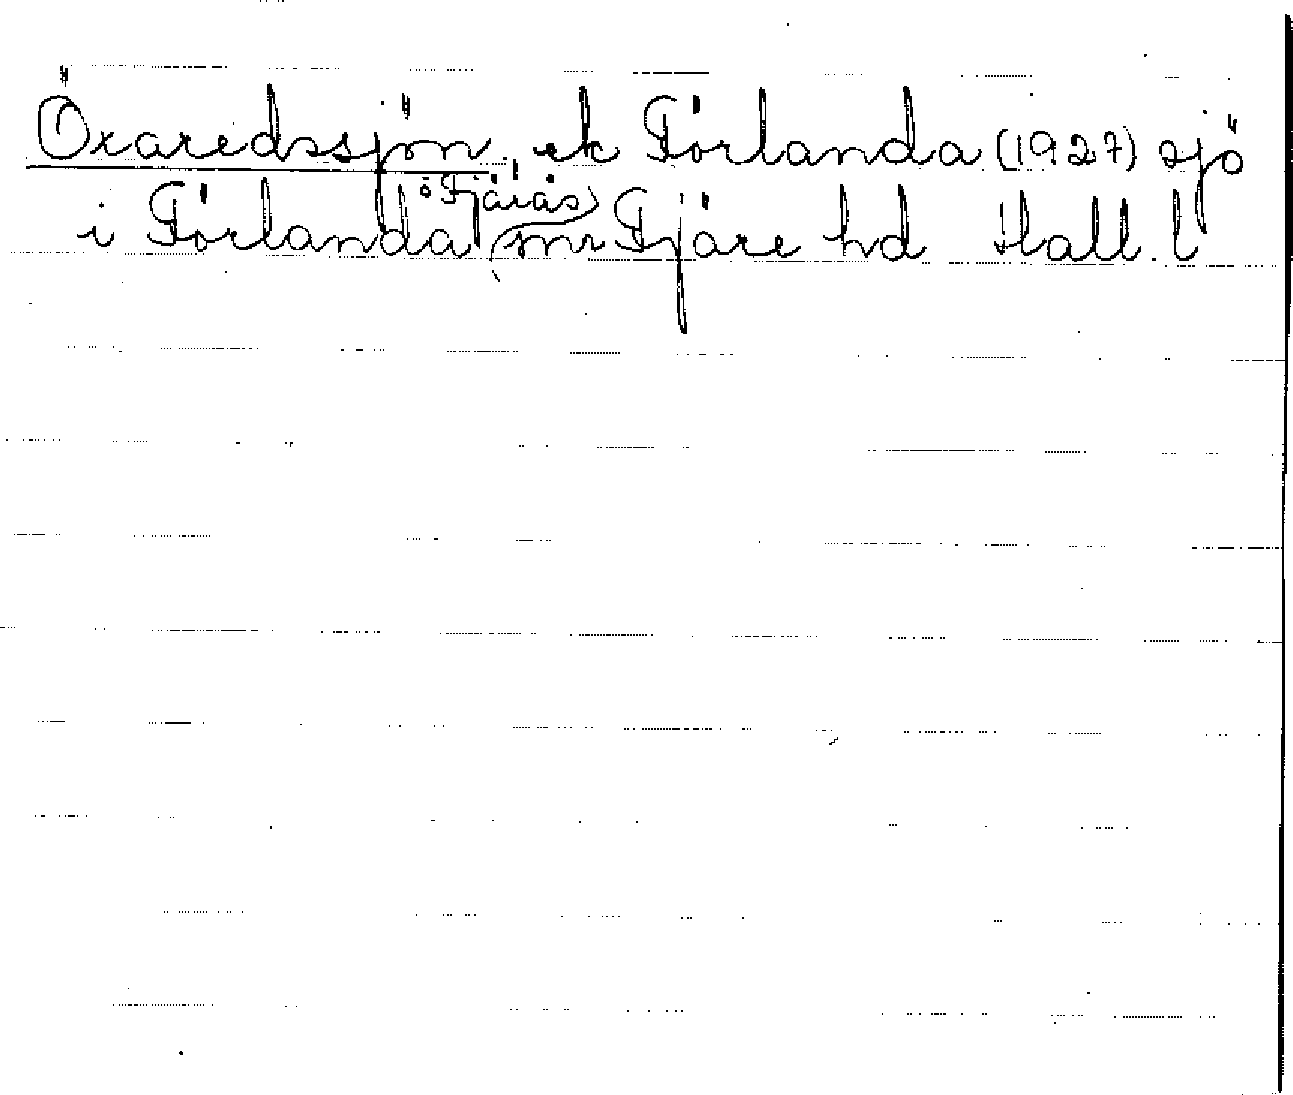 Öxaredssjön, ek Förlanda (1927) sjö
i Förlanda o Fjärås snr Fjäre hd Hall. l